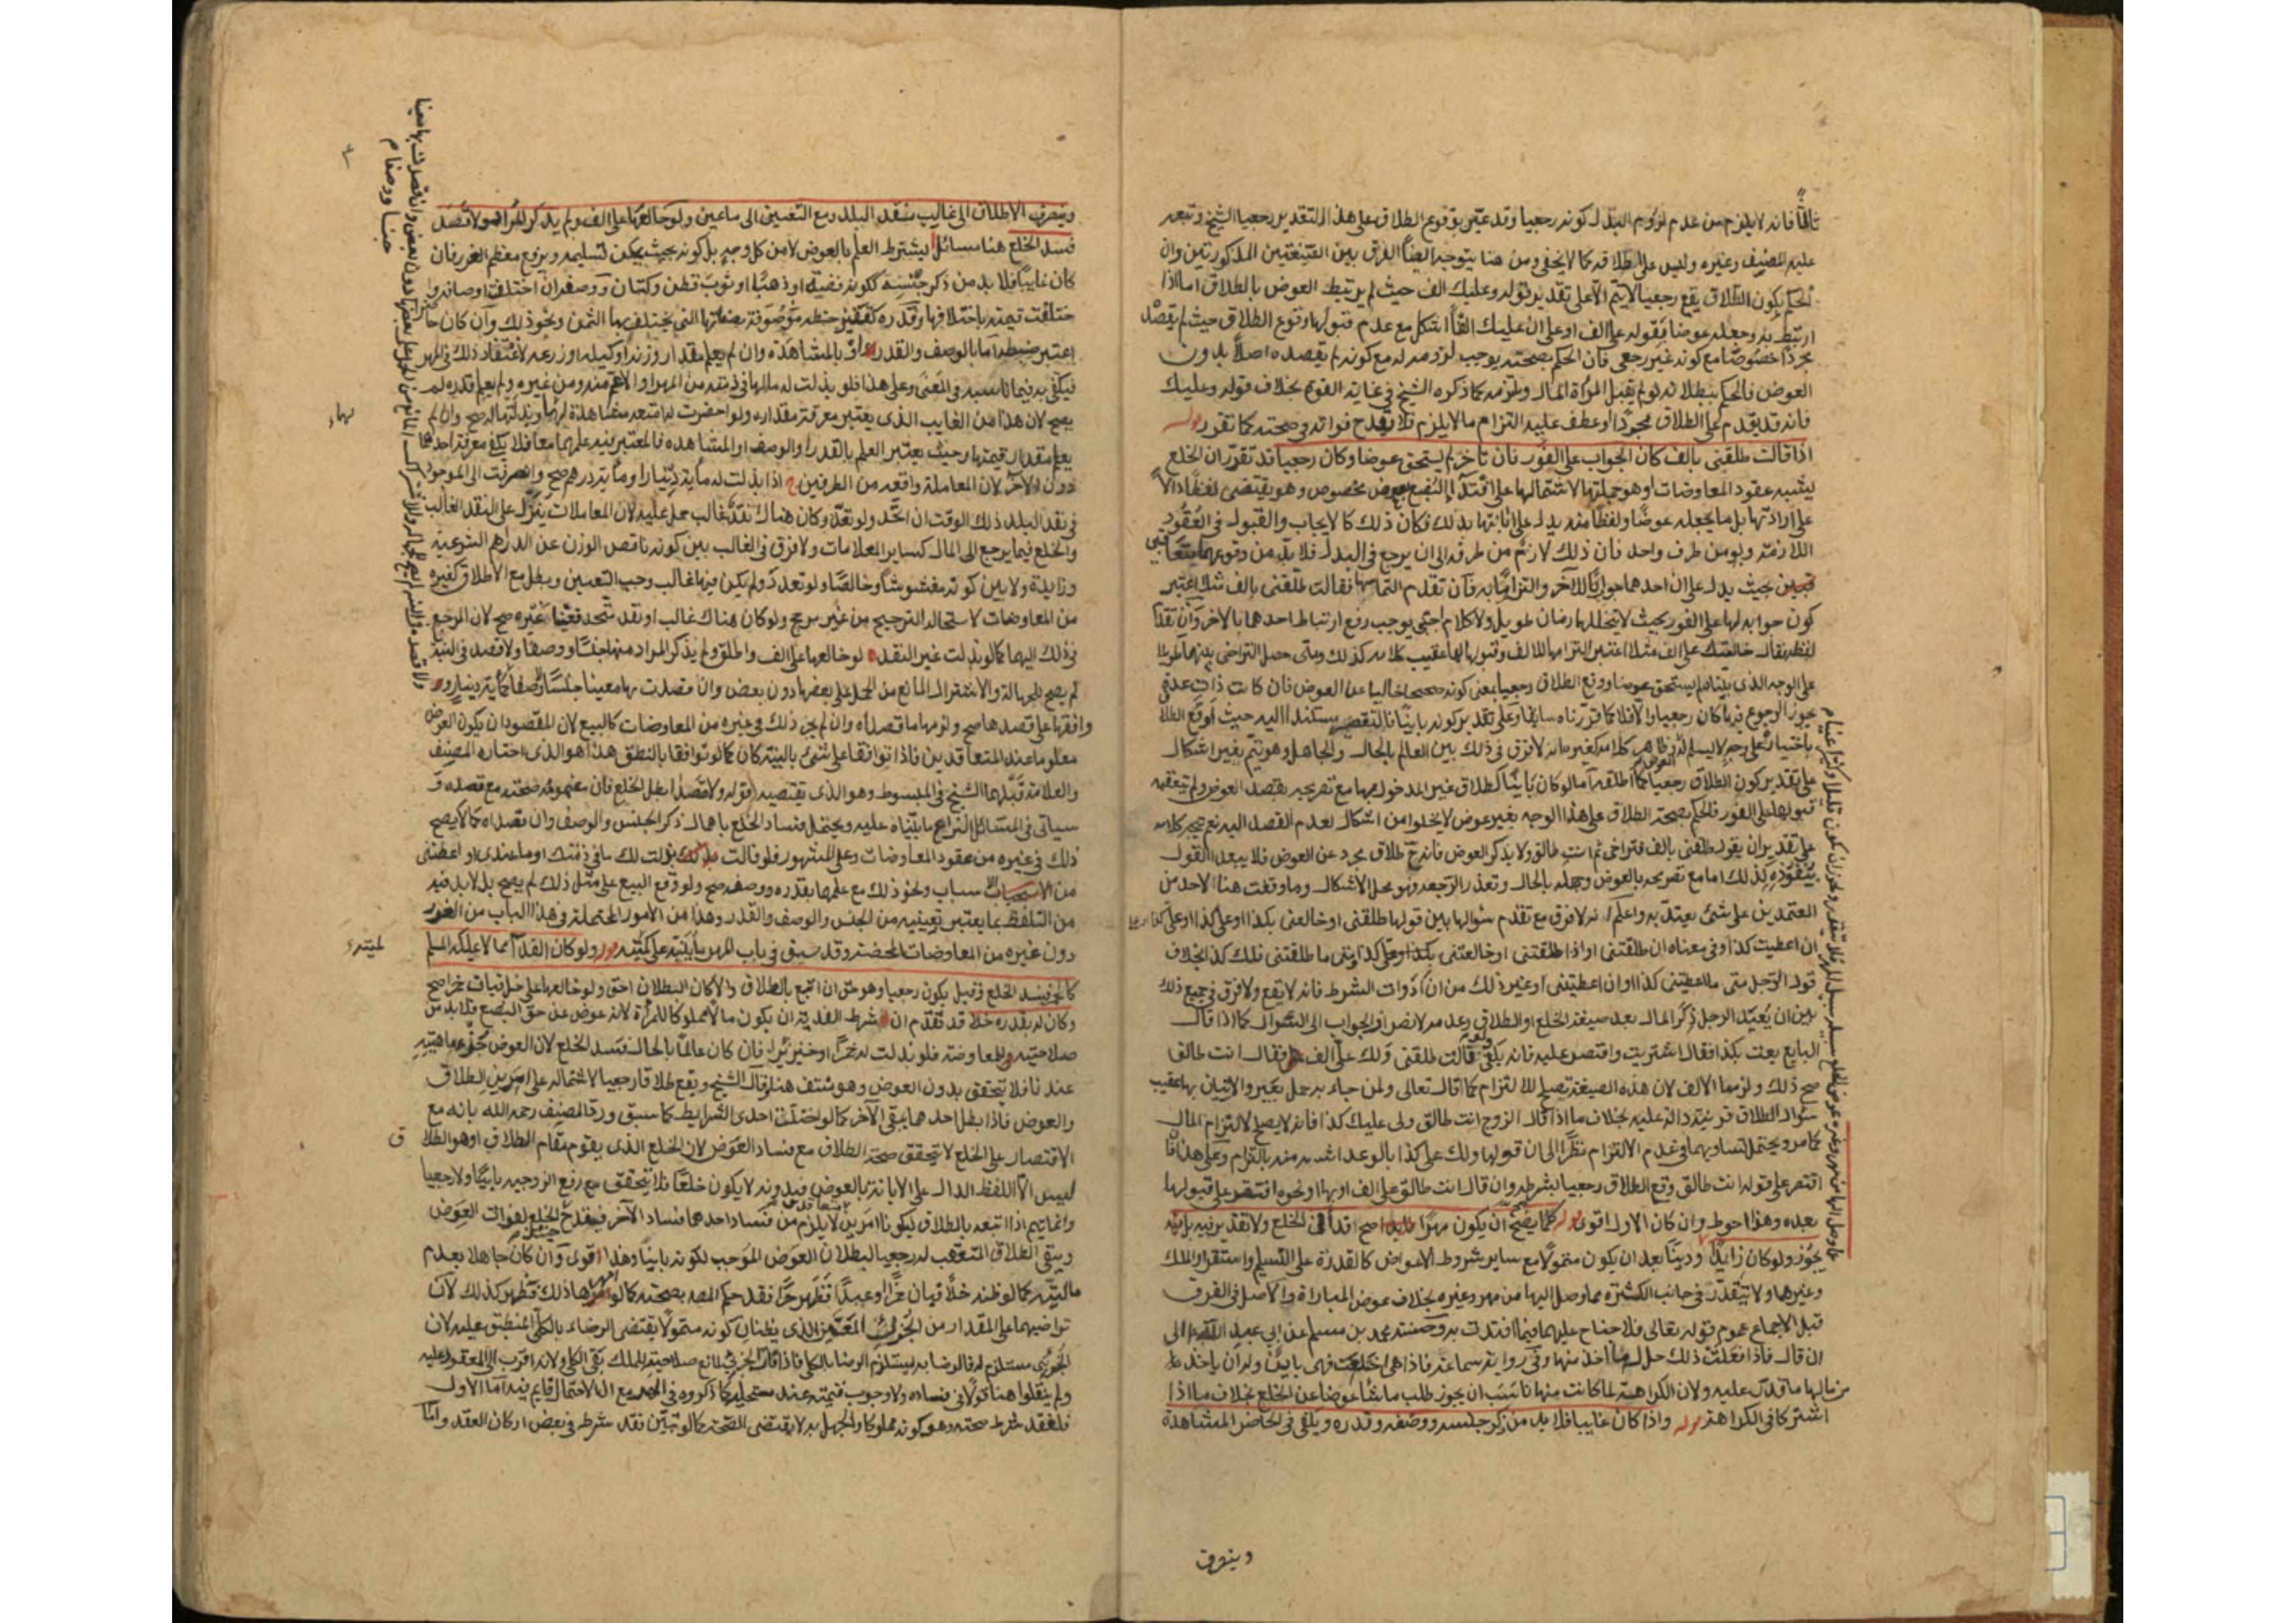 ثالثا فانه لا يلزم من عدم لزوم البذل كونه رجعيا وقد عبر بوقوع الطلاق على هذا التقدير رجعيا الشيخ وتبعه
عليه المصنف وغيره وليس على اطلاقه كما لا يخفى ومن هنا يتوجه ايضا الفرق بين الصيغتين المذكورتين وان
الحكم بكون الطلاق يقع رجعيا لا يتم الا على تقدير قوله وعليك الف حيث لم يرتبط العوض بالطلاق اما اذا
ارتبط به وجعله عوضا بقوله على الف او على ان عليك الفا اشكل مع عدم قبولها وقوع الطلاق حيث لم يقصد
مجردا خصوصا مع كونه غير رجعي فان الحكم بصحته يوجب لزومه له مع كونه لم يقصده اصلا بدون
العوض فالحكم ببطلانه لو لم يقبل المراة المال وتلتزمه كما ذكره الشيخ في غاية القوة بخلاف قوله وعليك
فانه قد يقدم على الطلاق مجردا وعطف عليه التزام ما لا يلزم فلا يقدح فواته في صحته كما تقرر قوله
اذا قالت طلقني بالف كان الجواب على الفور فان تاخر لم يستحق عوضا وكان رجعيا قد تقرر ان الخلع
يشبه عقود المعاوضات او هو من جملتها لاشتمالها على افتداء البضع بعوض مخصوص وهو يقتضي لفظا دالا
على ارادتها بل ما يجعله عوضا ولفظا منه يدل على ابانتها بذلك فكان ذلك كالايجاب والقبول في العقود
اللازمة ولو من طرف واحد فان ذلك لازم من طرفه الى ان يرجع في البذل فلا بد من وقوعهما متعاقبين
بحيث يدل على ان احدهما جوابا للآخر والتزاما به فان تقدم التماسها فقالت طلقني بالف مثلا اعتبر
كون جوابه لها على الفور بحيث لا يتخللها زمان طويل ولا كلام اجنبي يوجب رفع ارتباط احدهما بالاخر وان تقدم
لفظه فقال خالعتك على الف مثلا اعتبر التزامها للالف وقبولها لها عقيب كلامه كذلك ومتى حصل التراخي بينهما طويلا
على الوجه الذي بيناه لم يستحق عوضا ووقع الطلاق رجعيا بمعنى كونه صحيحا خاليا عن العوض فان كانت ذات عدة
يجوز الرجوع فيها كان رجعيا والا فلا كما قررناه سابقا وعلى تقدير كونه باينا فالنقص مستند اليه حيث اوقع الطلاق
باختياره على وجه لا يسلم له وظاهر كلامه كغيره انه لا فرق في ذلك بين العالم بالحال والجاهل وهو يتم بغير اشكال
على تقدير كون الطلاق رجعيا كما اطلقه اما لو كان باينا كطلاق غير المدخول بها مع تصريحه بقصد العوض ولم يتعقبه
قبولها على الفور فالحكم بصحة الطلاق على هذا الوجه بغير عوض لا يخلوا من اشكال لعدم القصد اليه نعم يتجه كلامه
على تقدير ان يقول طلقني بالف فتراخى ثم انت طالق ولا يذكر العوض فانه ح طلاق مجرد عن العوض فلا يبعد القول
بنفوذه كذلك اما مع تصريحه بالعوض وجهله بالحال وتعذر الرجعة فهو محل الاشكال وما وقفت هنا لاحد من
المعتمدين على شئ يعتد به واعلم انه لا فرق مع تقدم سوالها بين قولها طلقني او خالعني بكذا او على كذا او على
ان اعطيت كذا وفي معناه ان طلقتني او اذا طلقتني او خالعتني بكذا وعلى كذا ومتى ما طلقتني فلك كذا بخلاف
قول الرجل متى ما اعطيتني كذا او ان اعطيتني او غير ذلك من ادوات الشرط فانه لا يقع ولا فرق في جميع ذلك
بين ان يعيد الرجل ذكر المال بعد صيغة الخلع او الطلاق وعدمه لانصراف الجواب الى السوال كما اذا قال
البايع بعت بكذا فقال اشتريت واقتصر عليه فانه يكفي ولو قالت طلقني ولك علي الف فقال انت طالق
صح ذلك ولزمها الالف لان هذه الصيغة تصلح للالتزام كما قال تعالى ولمن جاء به حمل بعير والاتيان بها عقيب
سوال الطلاق قرينة دالة عليه بخلاف ما اذا قال الزوج انت طالق ولي عليك كذا فانه لا يصلح لالتزام المال
كما مر ويحتمل تساويهما في عدم الالتزام نظرا الى ان قولها ولك علي كذا بالوعد اشبه منه بالتزام وعلى هذا فان
اقتصر على قوله انت طالق وقع الطلاق رجعيا بشرطه وان قال انت طالق على الف او بها ونحوه افتقر على قبولها
بعده وهذا احوط وان كان الاول اقوى قوله كلما يصح ان يكون مهرا صح فداء في الخلع ولا تقدير فيه بل انه
يجوز ولو كان زايدا ودينا بعد ان يكون متمولا مع ساير شروط الاعواض كالقدرة على التسليم واستقرار الملك
وغيرهما ولا يتقدر في جانب الكثرة بما وصل اليها من مهر وغيره بخلاف عوض المباراة والاصل في الفرق
قبل الاجماع عموم قوله تعالى فلا جناح عليهما فيما افتدت به وحسنة محمد بن مسلم عن ابي عبد الله الى
ان قال فاذا فعلت ذلك حل له ما اخذ منها وفي رواية سماعة فاذا هي اختلعت فهي باين وله ان ياخذ
من مالها ما قدر عليه ولان الكراهة لما كانت منها ناسب ان يجوز طلب ما شاء عوضا عن الخلع بخلاف ما اذا
اشتركا في الكراهة قوله واذا كان غايبا فلا بد من ذكر جنسه ووصفه وقدره ويكفي في الحاضر المشاهدة
وينصرف
وينصرف الاطلاق الى غالب نقد البلد ومع التعيين الى ما عين ولو خالعها على الف ولم يذكر المراد ولا قصد
فسد الخلع هنا مسائل ا يشترط العلم بالعوض لا من كل وجه بل كونه بحيث يمكن تسليمه ويرفع معظم الغرر فان
كان غايبا فلا بد من ذكر جنسه ككونه فضة او ذهبا او ثوب قطن وكتان ووصفه ان اختلف اوصافه وا
ختلفت قيمته باختلافها وقدره كقفيز حنطة موصوفة بصفاتها التي يختلف بها الثمن ونحو ذلك وان كان حاضرا
اعتبر ضبطه اما بالوصف والقدر او بالمشاهدة وان لم يعلم مقدار وزنه او كيله او زرعه لاغتفار ذلك في المهر
فيكفي به فيما ناسبه في المعنى وعلى هذا فلو بذلت له مالها في ذمته من المهر او الاعم منه ومن غيره ولم يعلم قدره لم
يصح لان هذا من الغايب الذي يعتبر معرفة مقداره ولو احضرت له امتعة مشاهدة لها وبذلتها له صح وان لم
يعلم مقدار قيمتها وحيث يعتبر العلم بالقدر او الوصف او المشاهدة فالمعتبر فيه علمهما معا فلا يكفي معرفة احدهما
دون الآخر لان المعاملة واقعة من الطرفين ج اذا بذلت له ماية دينار او ماية درهم صح وانصرفت الى الموجود
في نقد البلد ذلك الوقت ان اتحد ولو تعدد وكان هناك نقد غالب حمل عليه لان المعاملات ينزل على النقد الغالب
والخلع فيما يرجع الى المال كساير المعاملات ولا فرق في الغالب بين كونه ناقص الوزن عن الدراهم الشرعية
وزايدة ولا بين كونه مغشوشا وخالصا ولو تعدد ولم يكن فيها غالب وجب التعيين وبطل مع الاطلاق كغيره
من المعاوضات لاستحالة الترجيح من غير مرجح ولو كان هناك غالب او نقد متحد فعينا غيره صح لان المرجع
في ذلك اليهما كما لو بذلت غير النقد لو خالعها على الف واطلق ولم يذكر المراد منها جنسا ووصفا ولا قصد في النية
لم يصح للجهالة والاشتراك المانع من الحمل على بعضها دون بعض وان قصدت بها معينا جنسا ووصفا كماية دينار و
وافقها على قصدها صح ولزمها ما قصداه وان لم يجز ذلك في غيره من المعاوضات كالبيع لان المقصود ان يكون العوض
معلوما عند المتعاقدين فاذا توافقا على شئ بالنية كان كما لو توافقا بالنطق هذا هو الذي اختاره المصنف
والعلامة قبلهما الشيخ في المبسوط وهو الذي يقتضيه قوله ولا قصد بطل الخلع فان مفهومه صحته مع قصده و
سياتي في المسائل النزاع ما يبناه عليه ويحتمل فساد الخلع باهمال ذكر الجنس والوصف وان قصداه كما لا يصح
ذلك في غيره من عقود المعاوضات وعلى المشهور فلو قالت بذلت لك ما في ذمتك او ما عندي او اعطتني
من الاسباب ونحو ذلك مع علمها بقدره ووصفه صح ولو وقع البيع على مثل ذلك لم يصح بل لا بد فيه
من التلفظ بما يعتبر تعيينه من الجنس والوصف والقدر وهذا من الامور المحتملة في هذا الباب من الغرر
دون غيره من المعاوضات المحضة وقد سبق في باب المهر ما ينبه على مثله قوله ولو كان الفداء مما لا يملكه المسلم
كالخمر فسد الخلع وقيل يكون رجعيا وهو حق ان اتبع بالطلاق والا كان البطلان احق ولو خالعها على خل فبان خمرا صح
وكان له بقدره خلا قد تقدم ان شرط الفدية ان يكون مالا مملوكا للمراة لانه عوض عن حق البضع فلا بد من
صلاحيته للمعاوضة فلو بذلت له خمرا او خنزيرا فان كان عالما بالحال فسد الخلع لان العوض جزء ماهيته
عندنا فلا يتحقق بدون العوض وهو منتف هنا وقال الشيخ ويقع طلاقا رجعيا لاشتماله على امرين الطلاق
والعوض فاذا بطل احدهما بقي الآخر كما لو اختلت احدى الشرايط كما سبق ورده المصنف رحمه الله بانه مع
الاقتصار على الخلع لا يتحقق صحة الطلاق مع فساد العوض لان الخلع الذي يقوم مقام الطلاق او هو الطلاق
ليس الا اللفظ الدال على الابانة بالعوض فبدونه لا يكون خلعا فلا يتحقق مع رفع الزوجية باينا ولا رجعيا
وانما يتم اذا اتبعه بالطلاق ليكونا امرين لا يلزم من فساد احدهما فساد الآخر فيفسد ح الخلع لفوات العوض
ويبقى الطلاق المتعقب له رجعيا لبطلان العوض الموجب لكونه باينا وهذا اقوى وان كان جاهلا بعدم
ماليته كما لو ظنه خلا فبان خمرا او عبدا فظهر حرا فقد حكم المصه بصحته كما لو امهرها ذلك فظهر كذلك لان
تراضيهما على المقدار من الجزئي المعين الذي يظنان كونه متمولا يقتضي الرضاء بالكلي المنطبق عليه لان
الجزئي مستلزم له فالرضا به يستلزم الرضا بالكلي فاذا فات الجزئي لمانع صلاحيته للملك بقي الكلي ولانه اقرب الى المعقود عليه
ولم ينقلوا هنا قولا في فساده ولا وجوب قيمته عند مستحليه كما ذكروه في المهر مع ان الاحتمال قايم فيه اما الاول
فلفقد شرط صحته وهو كونه مملوكا والجهل به لا يقتضي الصحة كما لو تبين فقد شرط في بعض اركان العقد واما